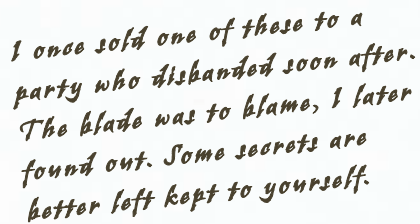 I once sold one of these to a
party who disbanded soon after.
The blade was to blame, I later
found out. Some secrets are
better left kept to yourself.